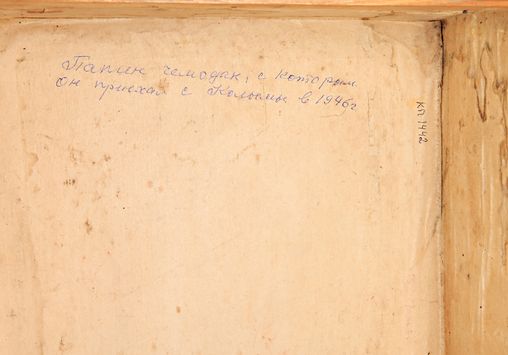 Папин чемодан, с которым
он приехал с Колымы в 1946г
КП 1442